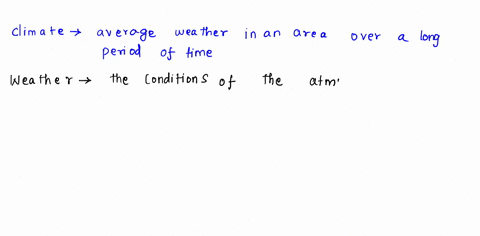 Climate → average weather in an area over a long
period of time
Weather → the conditions of the atm